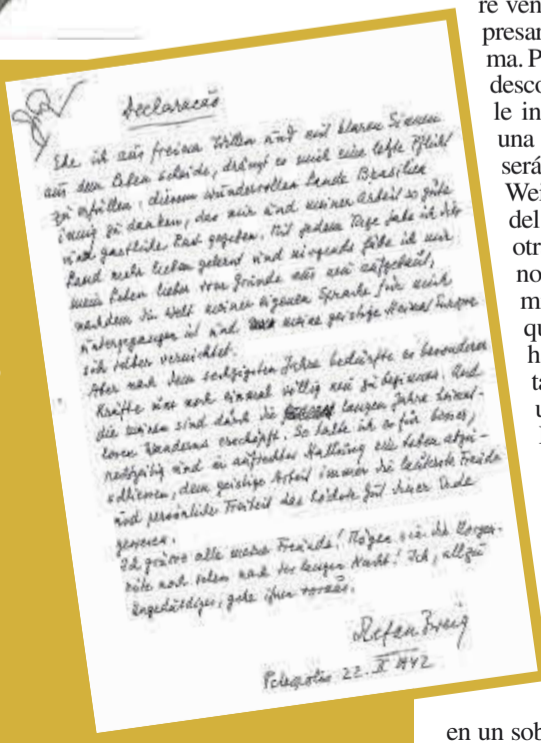 Declaracão
Ehe ich aus freiem Willen und mit klaren Sinnen
aus dem Leben scheide, drängt es mich eine letzte Pflicht
zu erfüllen: diesem wundervollen Lande Brasilien
innig zu danken, das mir und meiner Arbeit so gute
und gastliche Rast gegeben. Mit jedem Tage habe ich dies
Land mehr lieben gelernt und nirgends hätte ich mir
mein Leben lieber vom Grunde aus neu aufgebaut,
nachdem die Welt meiner eigenen Sprache für mich
untergegangen ist und meine geistige Heimat Europa
sich selber vernichtet.
Aber nach dem sechzigsten Jahre bedürfte es besonderer
Kräfte um noch einmal völlig neu zu beginnen. Und
die meinen sind durch die langen Jahre heimat-
losen Wanderns erschöpft. So halte ich es für besser,
rechtzeitig und in aufrechter Haltung ein Leben abzu-
schliessen, dem geistige Arbeit immer die lauterste Freude
und persönliche Freiheit das höchste Gut dieser Erde
gewesen.
Ich grüsse alle meine Freunde! Mögen sie die Morgen-
röte noch sehen nach der langen Nacht! Ich, allzu
Ungeduldiger, gehe ihnen voraus.
Stefan Zweig
Petropolis 22. II 1942
re ven
presar
ma. P
desco
le in
una
será
Wei
del
otr
no
m
qu
h
ta
u
en un sob